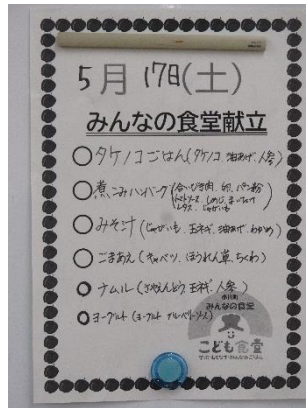 5月17日(土)
みんなの食堂献立
○タケノコごはん(タケノコ、油あげ、人参)
○煮こみハンバーグ(合いびき肉、卵、パン粉
トマトソース、しめじ、まいたけ
レタス、じゃがいも
○みそ汁(じゃがいも、玉ネギ、油あげ、わかめ)
○ごまあえ(キャベツ、ほうれん草、ちくわ)
○ナムル(さやえんどう、玉ネギ、人参)
○ヨーグルト(ヨーグルト ブルーベリーソース)
みんなの食堂
こども食堂